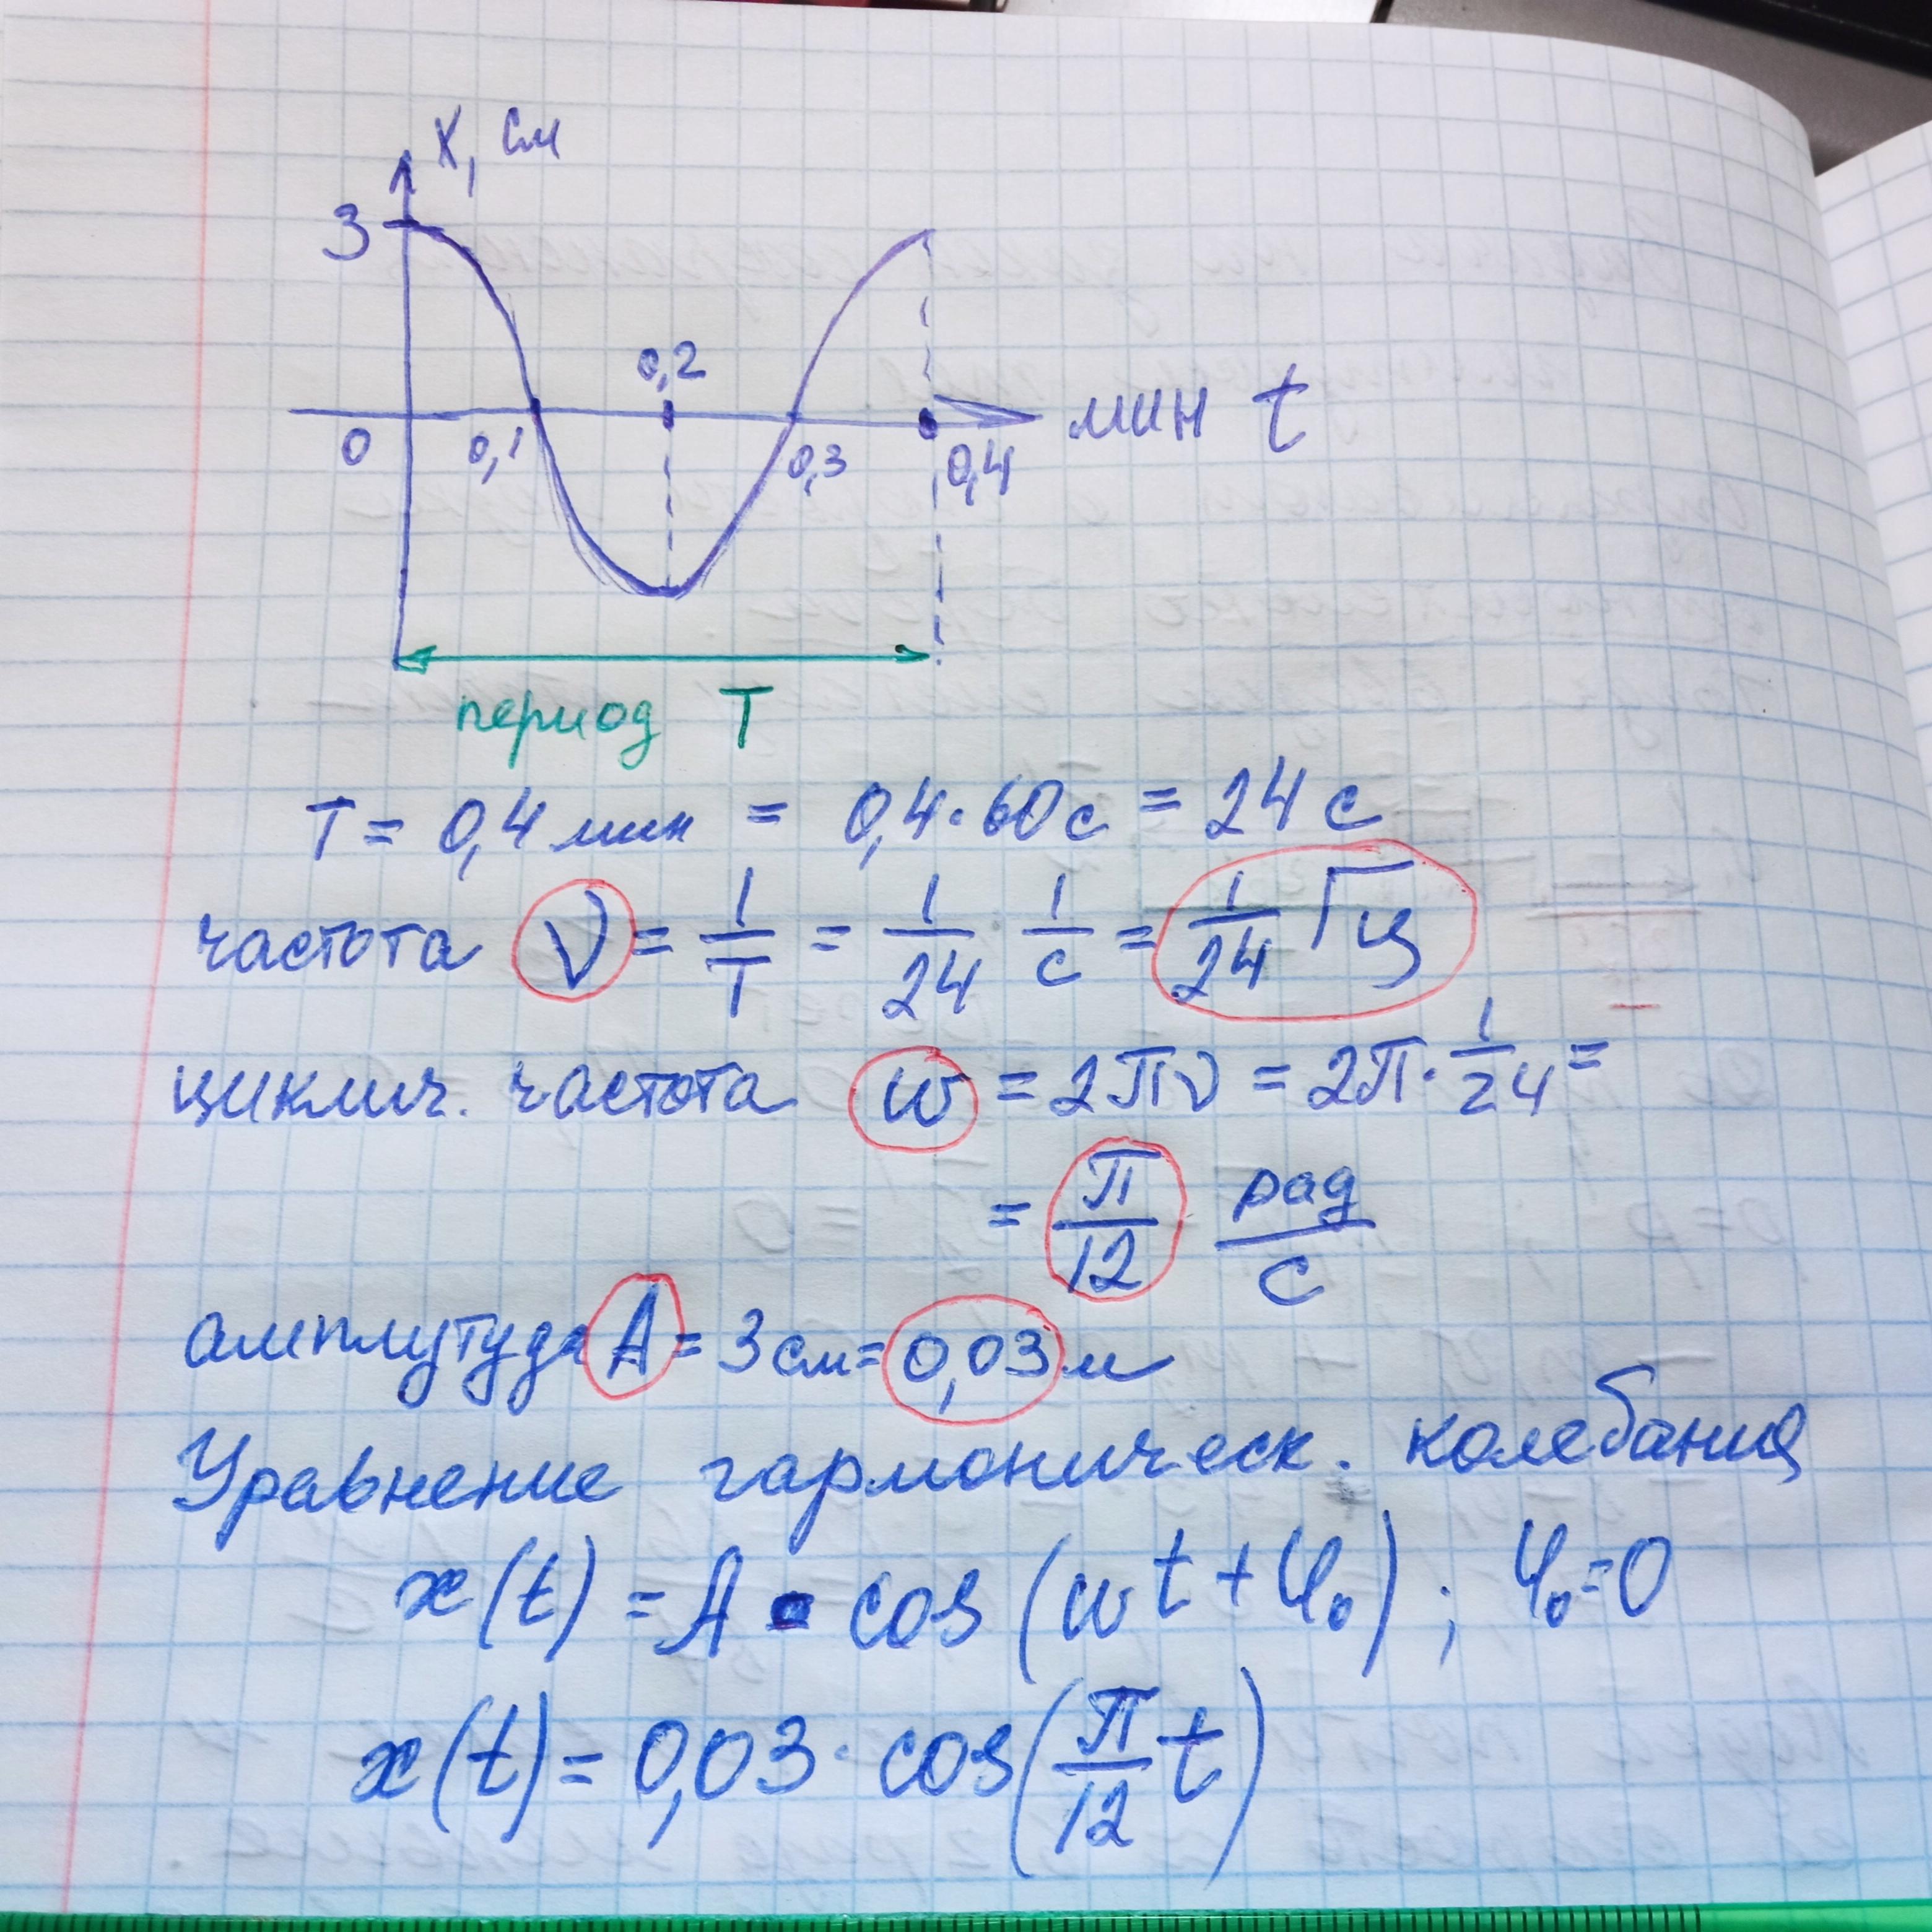 x, см
3
0,2
0 0,1 0,3 0,4 мин t
период T
T = 0,4 мин = 0,4·60 с = 24 с
частота ν = 1/T = 1/24 · 1/с = 1/24 Гц
циклич. частота w = 2πν = 2π · 1/24 =
= π/12 рад/с
амплутуда A = 3 см = 0,03 м
Уравнение гармоническ. колебания
x(t) = A · cos (wt + φ₀) ; φ₀ = 0
x(t) = 0,03 · cos(π/12 t)